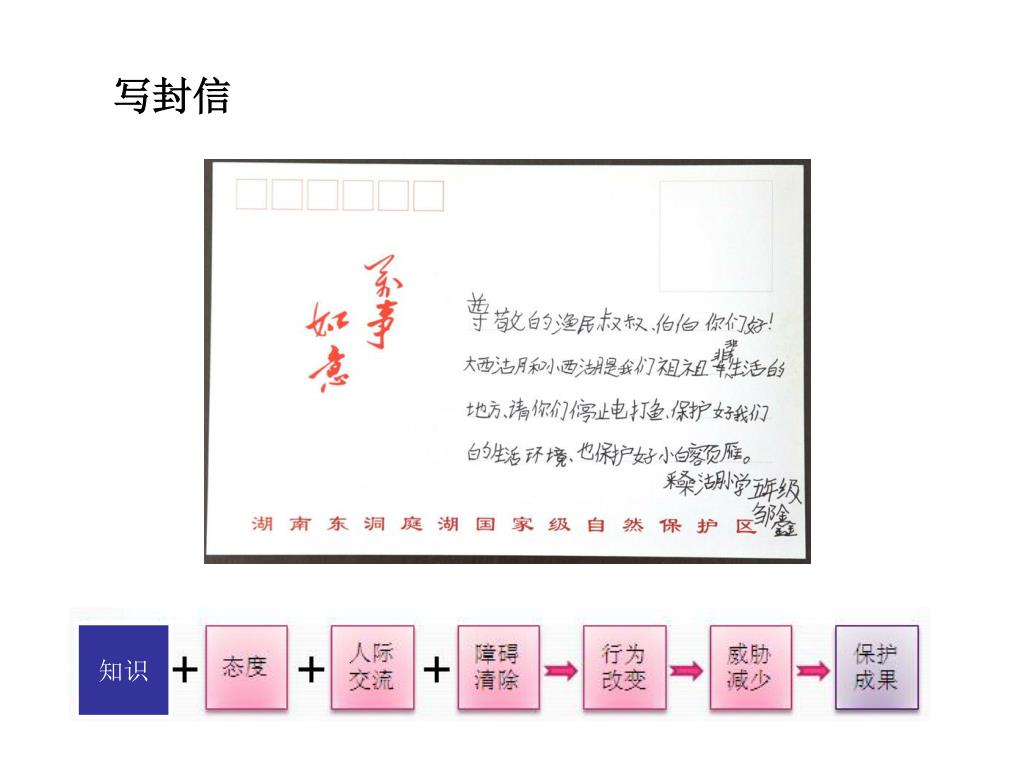 写封信
万事
如意
尊敬的渔民叔叔、伯伯 你们好!
大西沽月和小西沽月是我们祖祖辈辈生活的
地方、请你们停止电打鱼、保护好我们
的生活环境、也保护好小白额雁。
采桑湖小学五年级
邹鑫
湖南东洞庭湖国家级自然保护区
知识 + 态度 + 人际交流 + 障碍清除 行为改变 威胁减少 保护成果